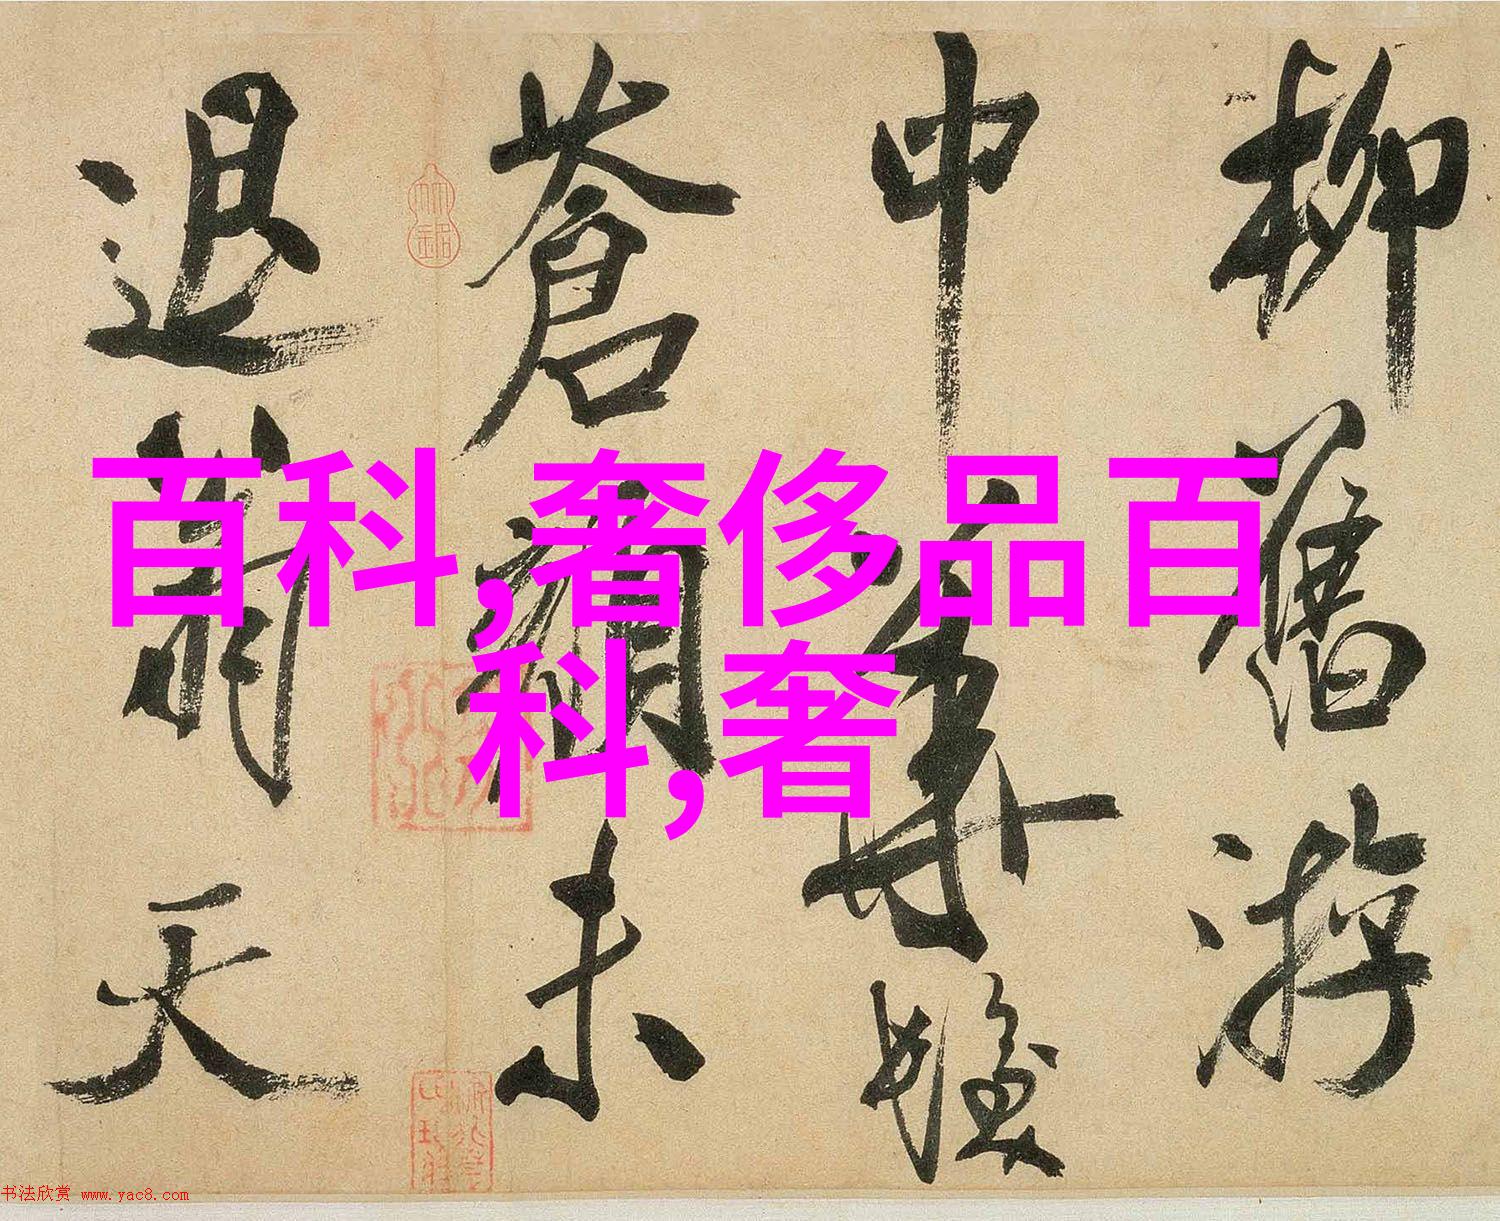 百科,奢侈品百
科,奢
柳舊游
中華發
蒼顏未
退蕭天
书法欣赏 www.yac8.com